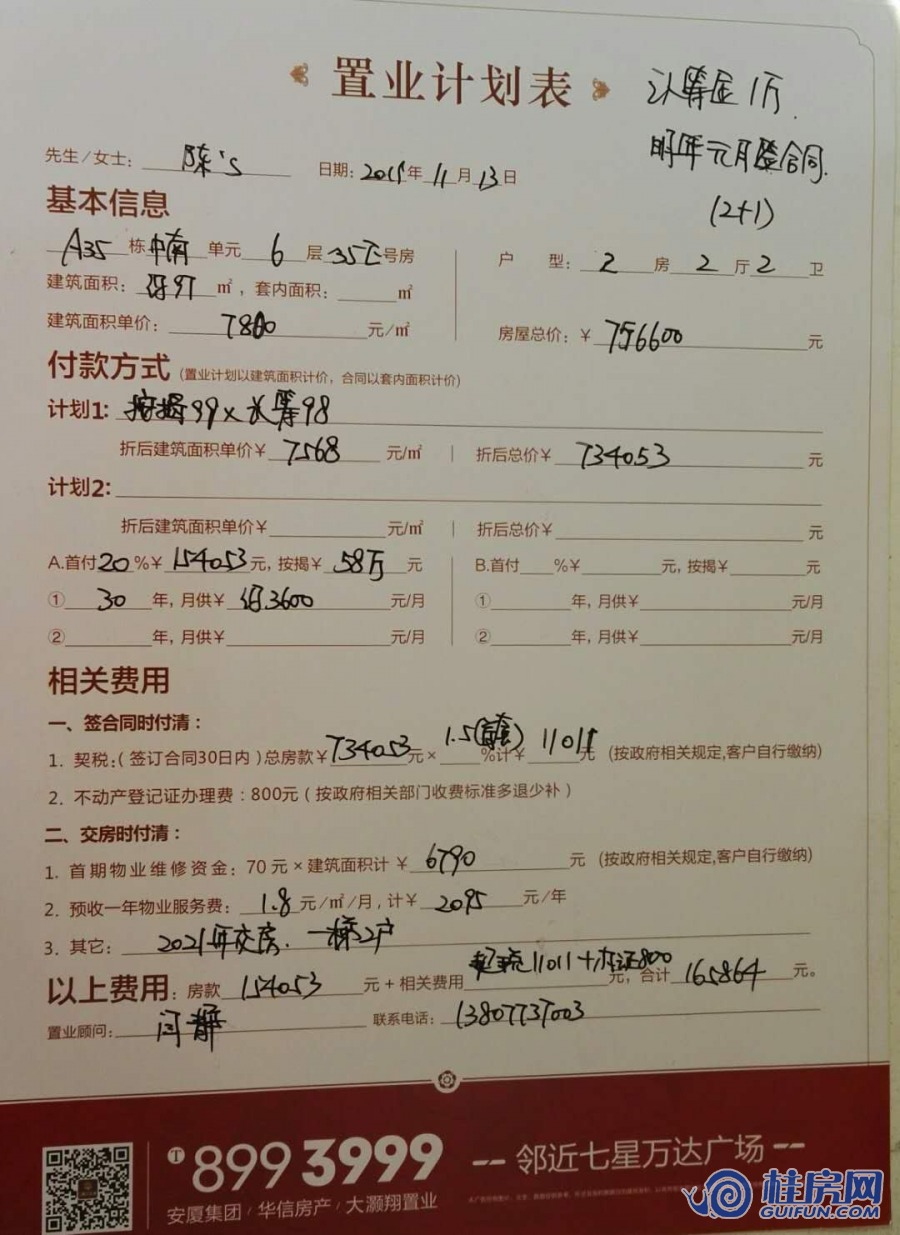 置业计划表
认筹金1万.
明年元月签合同.
(2+1)
先生/女士: 陈's 日期: 年11月13日
基本信息
A35栋中南单元6层35E号房
户 型: 2房2厅2卫
建筑面积: 约97㎡, 套内面积: ㎡
建筑面积单价: 7800元/㎡
房屋总价: ¥756600元
付款方式 (置业计划以建筑面积计价, 合同以套内面积计价)
计划1: 按揭99×认筹98
折后建筑面积单价¥7568元/㎡ | 折后总价¥734053元
计划2:
折后建筑面积单价¥ 元/㎡ | 折后总价¥ 元
A.首付20%¥154053元, 按揭¥58万元
B.首付 %¥ 元, 按揭¥ 元
①30年, 月供¥约3600元/月
① 年, 月供¥ 元/月
② 年, 月供¥ 元/月
② 年, 月供¥ 元/月
相关费用
一、签合同时付清:
1. 契税:(签订合同30日内)总房款¥734053元×1.5(首套)%计¥11011元 (按政府相关规定,客户自行缴纳)
2. 不动产登记证办理费: 800元(按政府相关部门收费标准多退少补)
二、交房时付清:
1. 首期物业维修资金: 70元×建筑面积计 ¥6790元 (按政府相关规定,客户自行缴纳)
2. 预收一年物业服务费: 1.8元/㎡/月, 计¥2095元/年
3. 其它: 2021年交房. 一梯2户
以上费用: 房款154053元+相关费用契税11011+办证800元, 合计165864元。
置业顾问: 闫静 联系电话: 13807737003
T 899 3999 -- 邻近七星万达广场 --
安厦集团 / 华信房产 / 大灏翔置业
桂房网
GUIFUN.COM